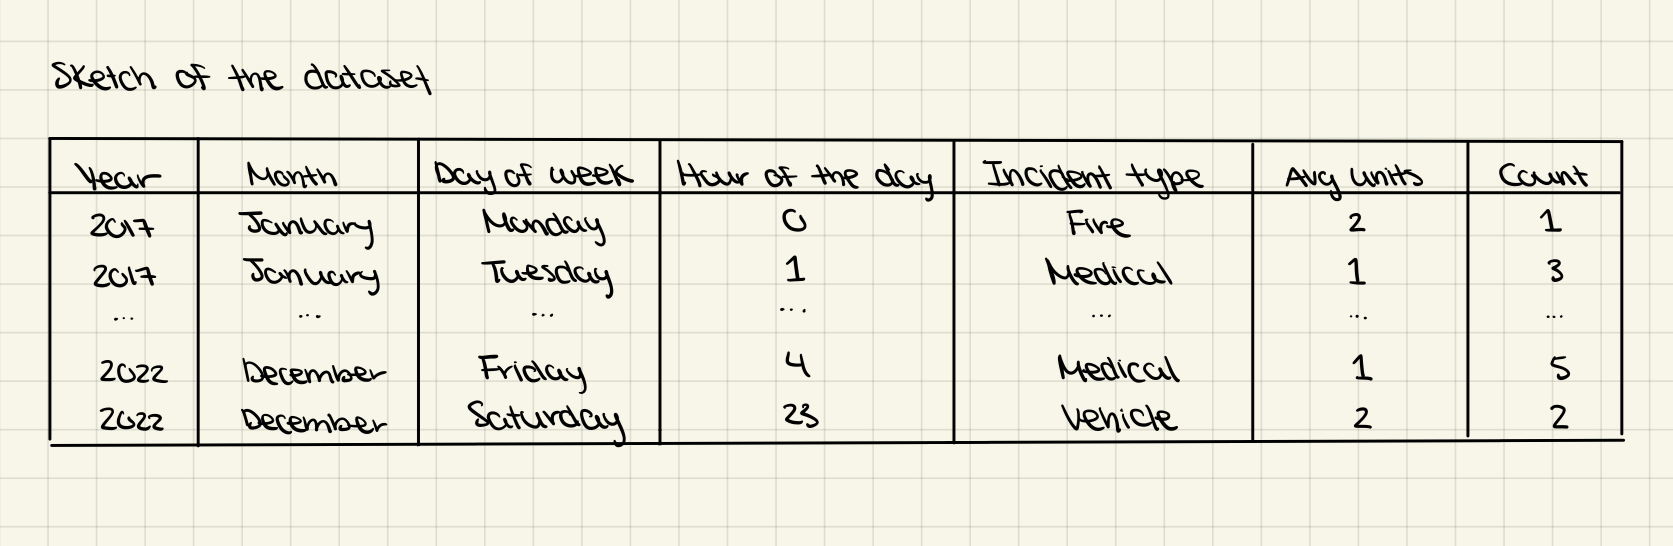 Sketch of the dataset
Year Month Day of week Hour of the day Incident type Avg units Count
2017 January Monday 0 Fire 2 1
2017 January Tuesday 1 Medical 1 3
... ... ... ... ... ... ...
2022 December Friday 4 Medical 1 5
2022 December Saturday 23 Vehicle 2 2